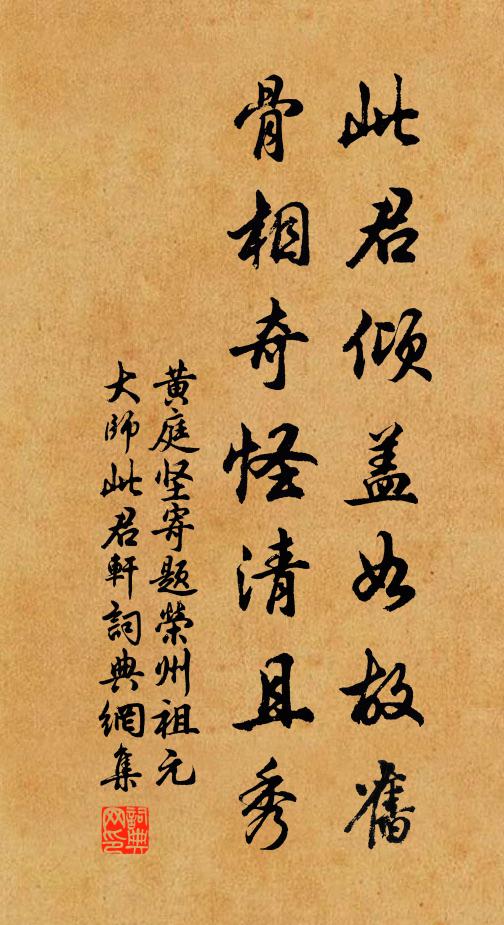 此君倾盖如故舊
骨相奇怪清且秀
黄庭坚寄题榮州祖元
大师此君軒詞典網集
詞典
网印